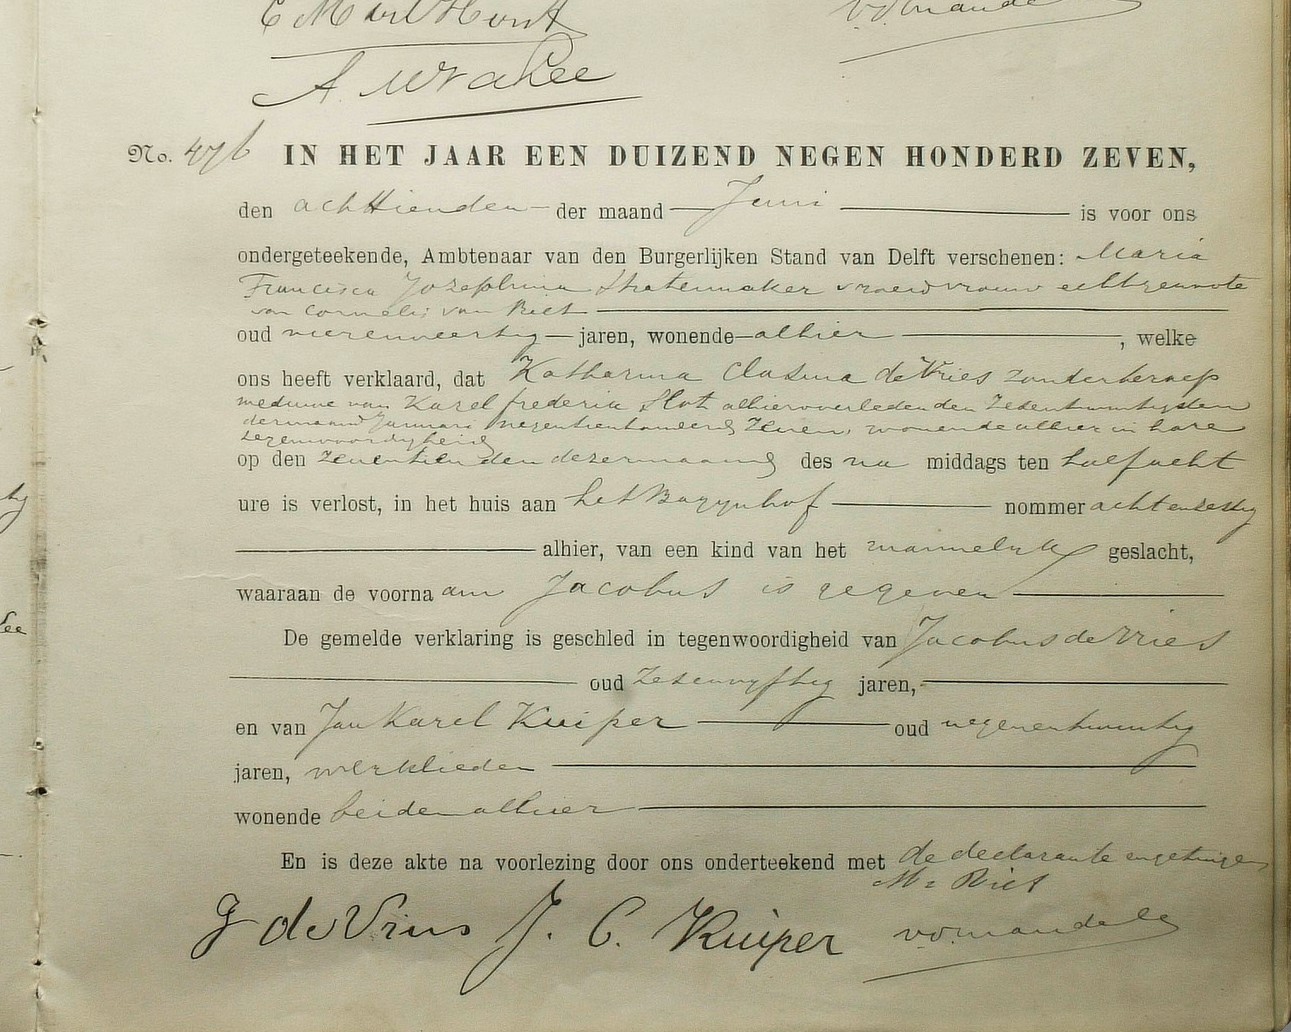 No. 476 IN HET JAAR EEN DUIZEND NEGEN HONDERD ZEVEN,
den achttienden der maand Juni is voor ons
ondergeteekende, Ambtenaar van den Burgerlijken Stand van Delft verschenen: Maria
Francisca Jozephina Stratenmaker vroedvrouw echtgenoote
van Cornelis van Riet
oud vierenveertig jaren, wonende alhier, welke
ons heeft verklaard, dat Katharina Clasina de Vries zonder beroep
weduwe van Karel frederik Slot alhier overleden den zesentwintigsten
der maand Januari negentienhonderd zeven, wonende alhier in hare
tegenwoordigheid
op den zeventienden dezer maand des na middags ten half acht
ure is verlost, in het huis aan het Bagynhof nommer achtenzestig
alhier, van een kind van het mannelijk geslacht,
waaraan de voornaam Jacobus is gegeven
De gemelde verklaring is geschied in tegenwoordigheid van Jacobus de Vries
oud zesenvyftig jaren,
en van Jan Karel Kuiper oud negenentwintig
jaren, werklieden
wonende beiden alhier
En is deze akte na voorlezing door ons onderteekend met de declarante en getuigen
Riet
J de Vries J. C. Kuiper